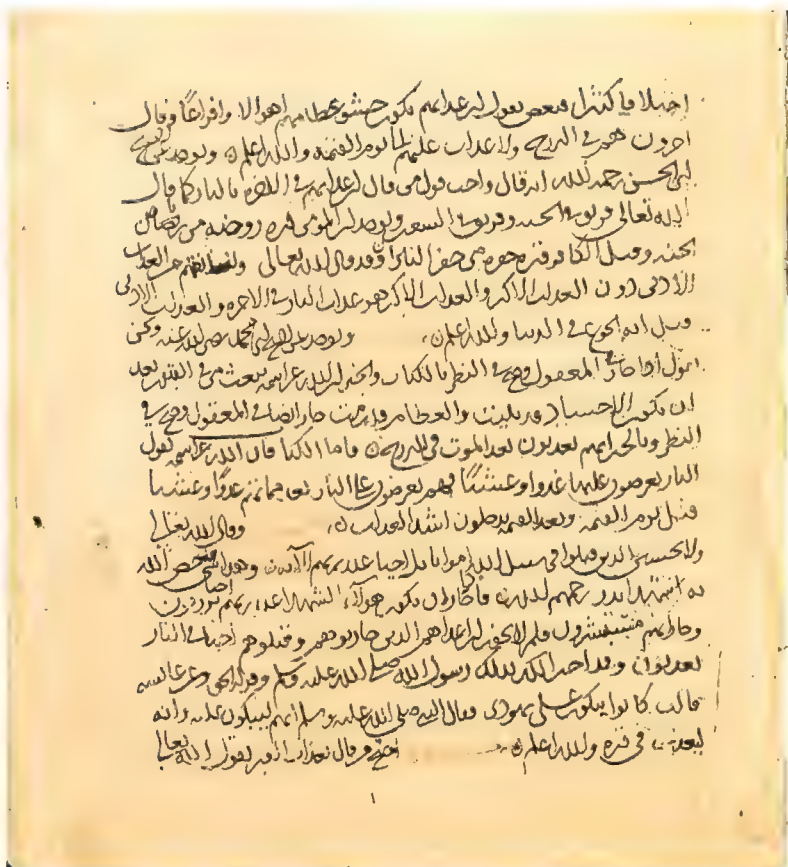 اختلافا كثيرا فبعض يقول ان عذابهم يكون حشو عظامهم اهوالا وافزاعا وقال
اخرون هم في البرزخ ولا عذاب عليهم الى يوم القيمة والله اعلم ويوجد عن
ابي الحسن رحمه الله انه قال واحب قول من قال ان عذابهم في الاخرة بالنار كما قال
الله تعالى فريق في الجنة وفريق في السعير ويوجد ان المومن قبره روضة من رياض
الجنة وقيل الكافر قبره حفرة من حفر النار وقد قال الله تعالى ولنذيقنهم من العذاب
الادنى دون العذاب الاكبر والعذاب الاكبر هو عذاب النار في الاخرة والعذاب الادنى
قيل انه الجوع في الدنيا والله اعلم ويوجد عن ابي محمد رضي الله عنه ونحن
نقول اذا جاز في المعقول وصح في النظر بالكتاب والخبر ان الله عز اسمه يبعث من في القبور بعد
ان تكون الاجساد قد بليت والعظام قد رمت جاز ايضا في المعقول وصح في
النظر وبالخبر انهم يعذبون بعد الموت في البرزخ فاما الكتاب فان الله عز اسمه يقول
النار يعرضون عليها غدوا وعشيا فهم يعرضون على النار بعد مماتهم غدوا وعشيا
قبل يوم القيمة وبعد القيمة يدخلون اشد العذاب وقال الله تعالى
ولا تحسبن الذين قتلوا في سبيل الله امواتا بل احياء عند ربهم الاية وهذا شي خص الله
به شهدا بدر رحمهم الله فاذا جاز ان يكون هولاء الشهدا عند ربهم احياء يرزقون
وجاز انهم مستبشرون فلم لا يجوز ان اعداهم الذين حاربوهم وقتلوهم احياء في النار
يعذبون وقد اخبرنا بذلك رسول الله صلى الله عليه وسلم وقوله الحق وعن عائشة
قالت كانوا يبكون على يهودي فقال النبي صلى الله عليه وسلم انهم ليبكون عليه وانه
ليعذب في قبره والله اعلم احتج من قال بعذاب القبر بقول الله تعالى